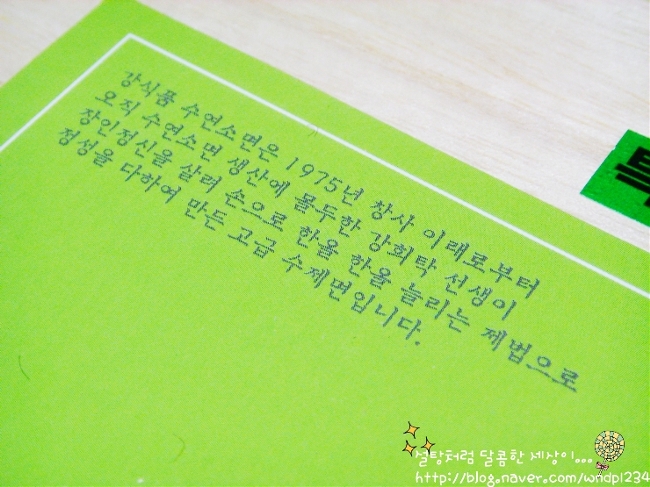 강식품 수연소면은 1975년 창사 이래로부터
오직 수연소면 생산에 몰두한 강희탁 선생이
장인정신을 살려 손으로 한올 한올 늘리는 제법으로
정성을 다하여 만든 고급 수제면입니다.
특
설탕처럼 달콤한 세상이...
http://blog.naver.com/wndpl234